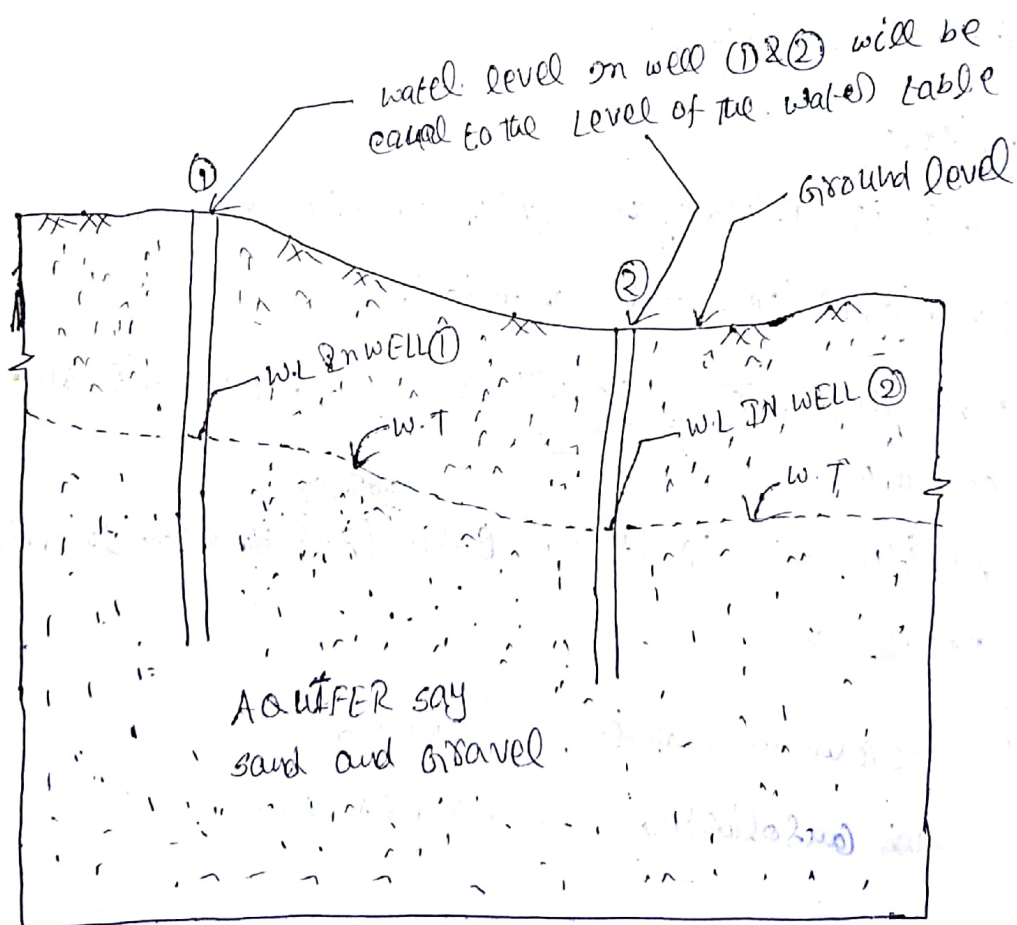 water level in well ① & ② will be
equal to the Level of the water table
Ground level
①
②
W.L In WELL ①
W.T
W.L IN WELL ②
W.T
AQUIFER say
sand and Gravel.